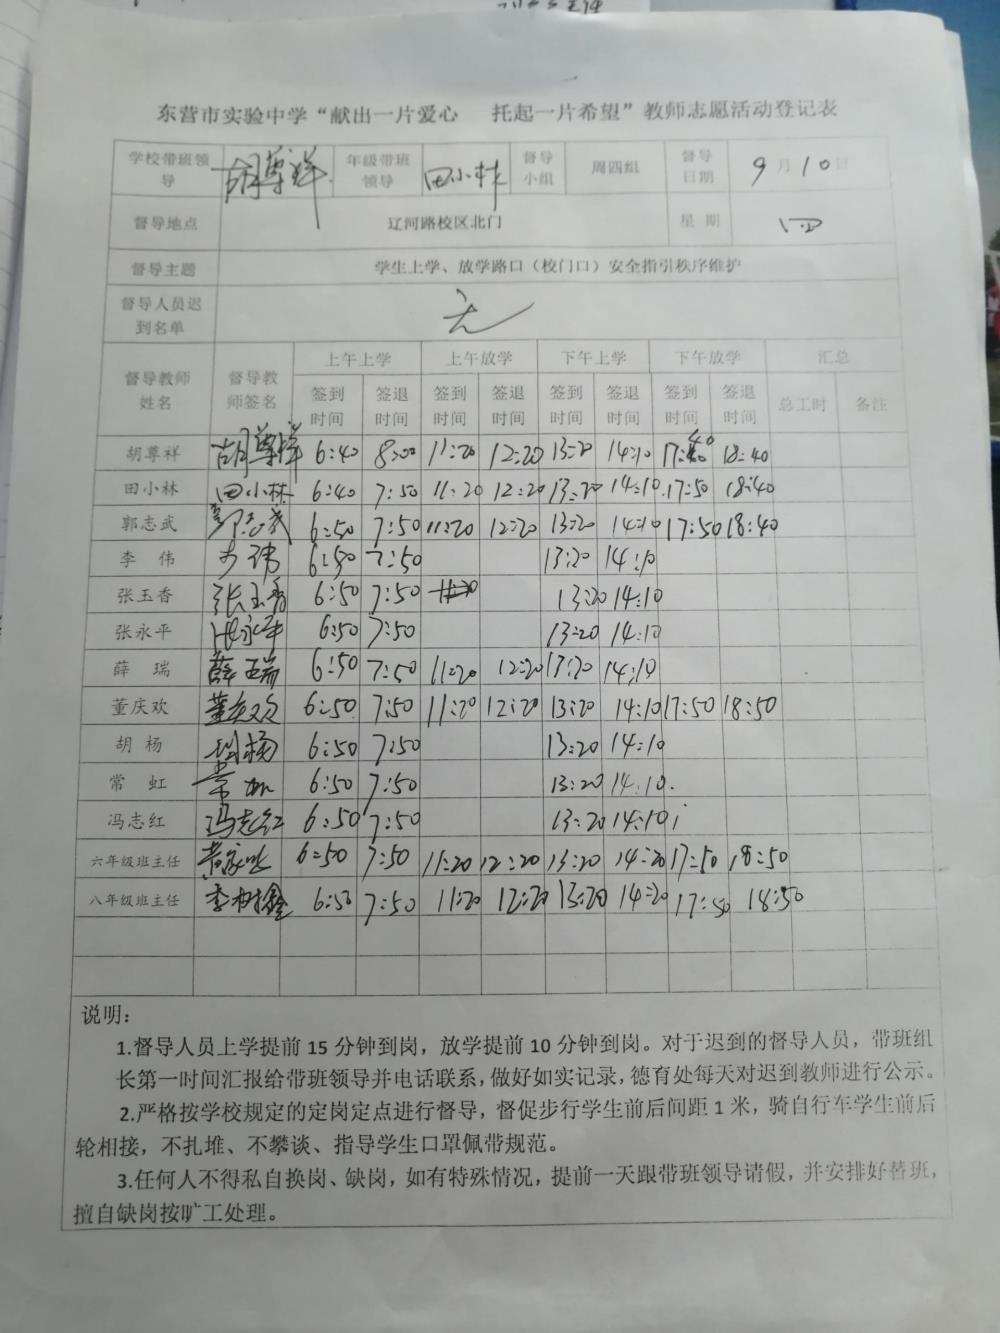 东营市实验中学“献出一片爱心 托起一片希望”教师志愿活动登记表
学校带班领导 胡尊祥 年级带班领导 田小林 督导小组 周四组 督导日期 9月10日
督导地点 辽河路校区北门 星期 四
督导主题 学生上学、放学路口（校门口）安全指引秩序维护
督导人员迟到名单 无
督导教师姓名 督导教师签名 上午上学 上午放学 下午上学 下午放学 汇总
签到时间 签退时间 签到时间 签退时间 签到时间 签退时间 签到时间 签退时间 总工时 备注
胡尊祥 胡尊祥 6:40 8:00 11:20 12:20 13:20 14:10 17:40 18:40
田小林 田小林 6:40 7:50 11:20 12:20 13:20 14:10 17:50 18:40
郭志武 郭志武 6:50 7:50 11:20 12:20 13:20 14:10 17:50 18:40
李伟 李伟 6:50 7:50 13:20 14:10
张玉香 张玉香 6:50 7:50 11:20 13:20 14:10
张永平 张永平 6:50 7:50 13:20 14:10
薛瑞 薛瑞 6:50 7:50 11:20 12:20 13:20 14:10
董庆欢 董庆欢 6:50 7:50 11:20 12:20 13:20 14:10 17:50 18:50
胡杨 胡杨 6:50 7:50 13:20 14:10
常虹 常虹 6:50 7:50 13:20 14:10.
冯志红 冯志红 6:50 7:50 13:20 14:10
六年级班主任 6:50 7:50 11:20 12:20 13:20 14:20 17:50 18:50
八年级班主任 李树鑫 6:50 7:50 11:20 12:20 13:20 14:20 17:50 18:50
说明：
1.督导人员上学提前 15 分钟到岗，放学提前 10 分钟到岗。对于迟到的督导人员，带班组
长第一时间汇报给带班领导并电话联系，做好如实记录，德育处每天对迟到教师进行公示。
2.严格按学校规定的定岗定点进行督导，督促步行学生前后间距 1 米，骑自行车学生前后
轮相接，不扎堆、不攀谈、指导学生口罩佩带规范。
3.任何人不得私自换岗、缺岗，如有特殊情况，提前一天跟带班领导请假，并安排好替班，
擅自缺岗按旷工处理。